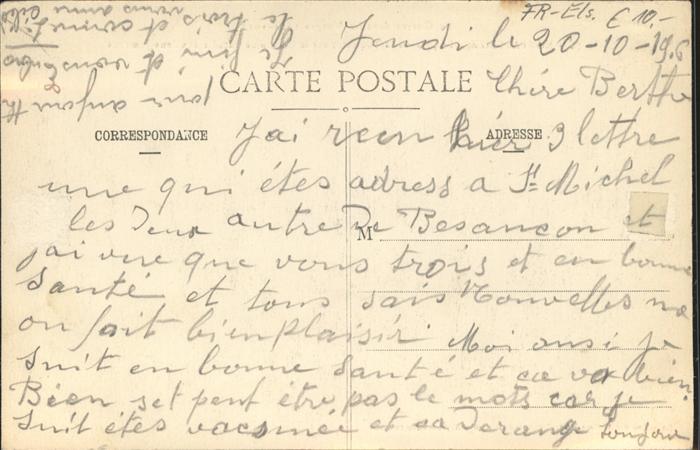 FR-Els. € 10,-
Jeudi le 20-10-19
CARTE POSTALE
Chère Berthe
CORRESPONDANCE
ADRESSE
J'ai recu hier 3 lettre
une qui étes adress a St Michel
les deux autre de Besancon et
M
j'ai vue que vous trois et en bonne
santé et tous sais nouvelles me
on fait bien plaisir Moi ausi je
suit en bonne santé et ca va bien.
Bien set peut étre pas le mots car je
suit étes vacsinée et ca derange toujour
pour aujour
Le fini et vous
le trois et